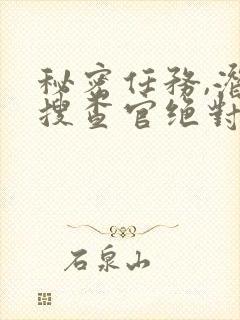 秘密任務,潛
搜查官绝對
石泉山